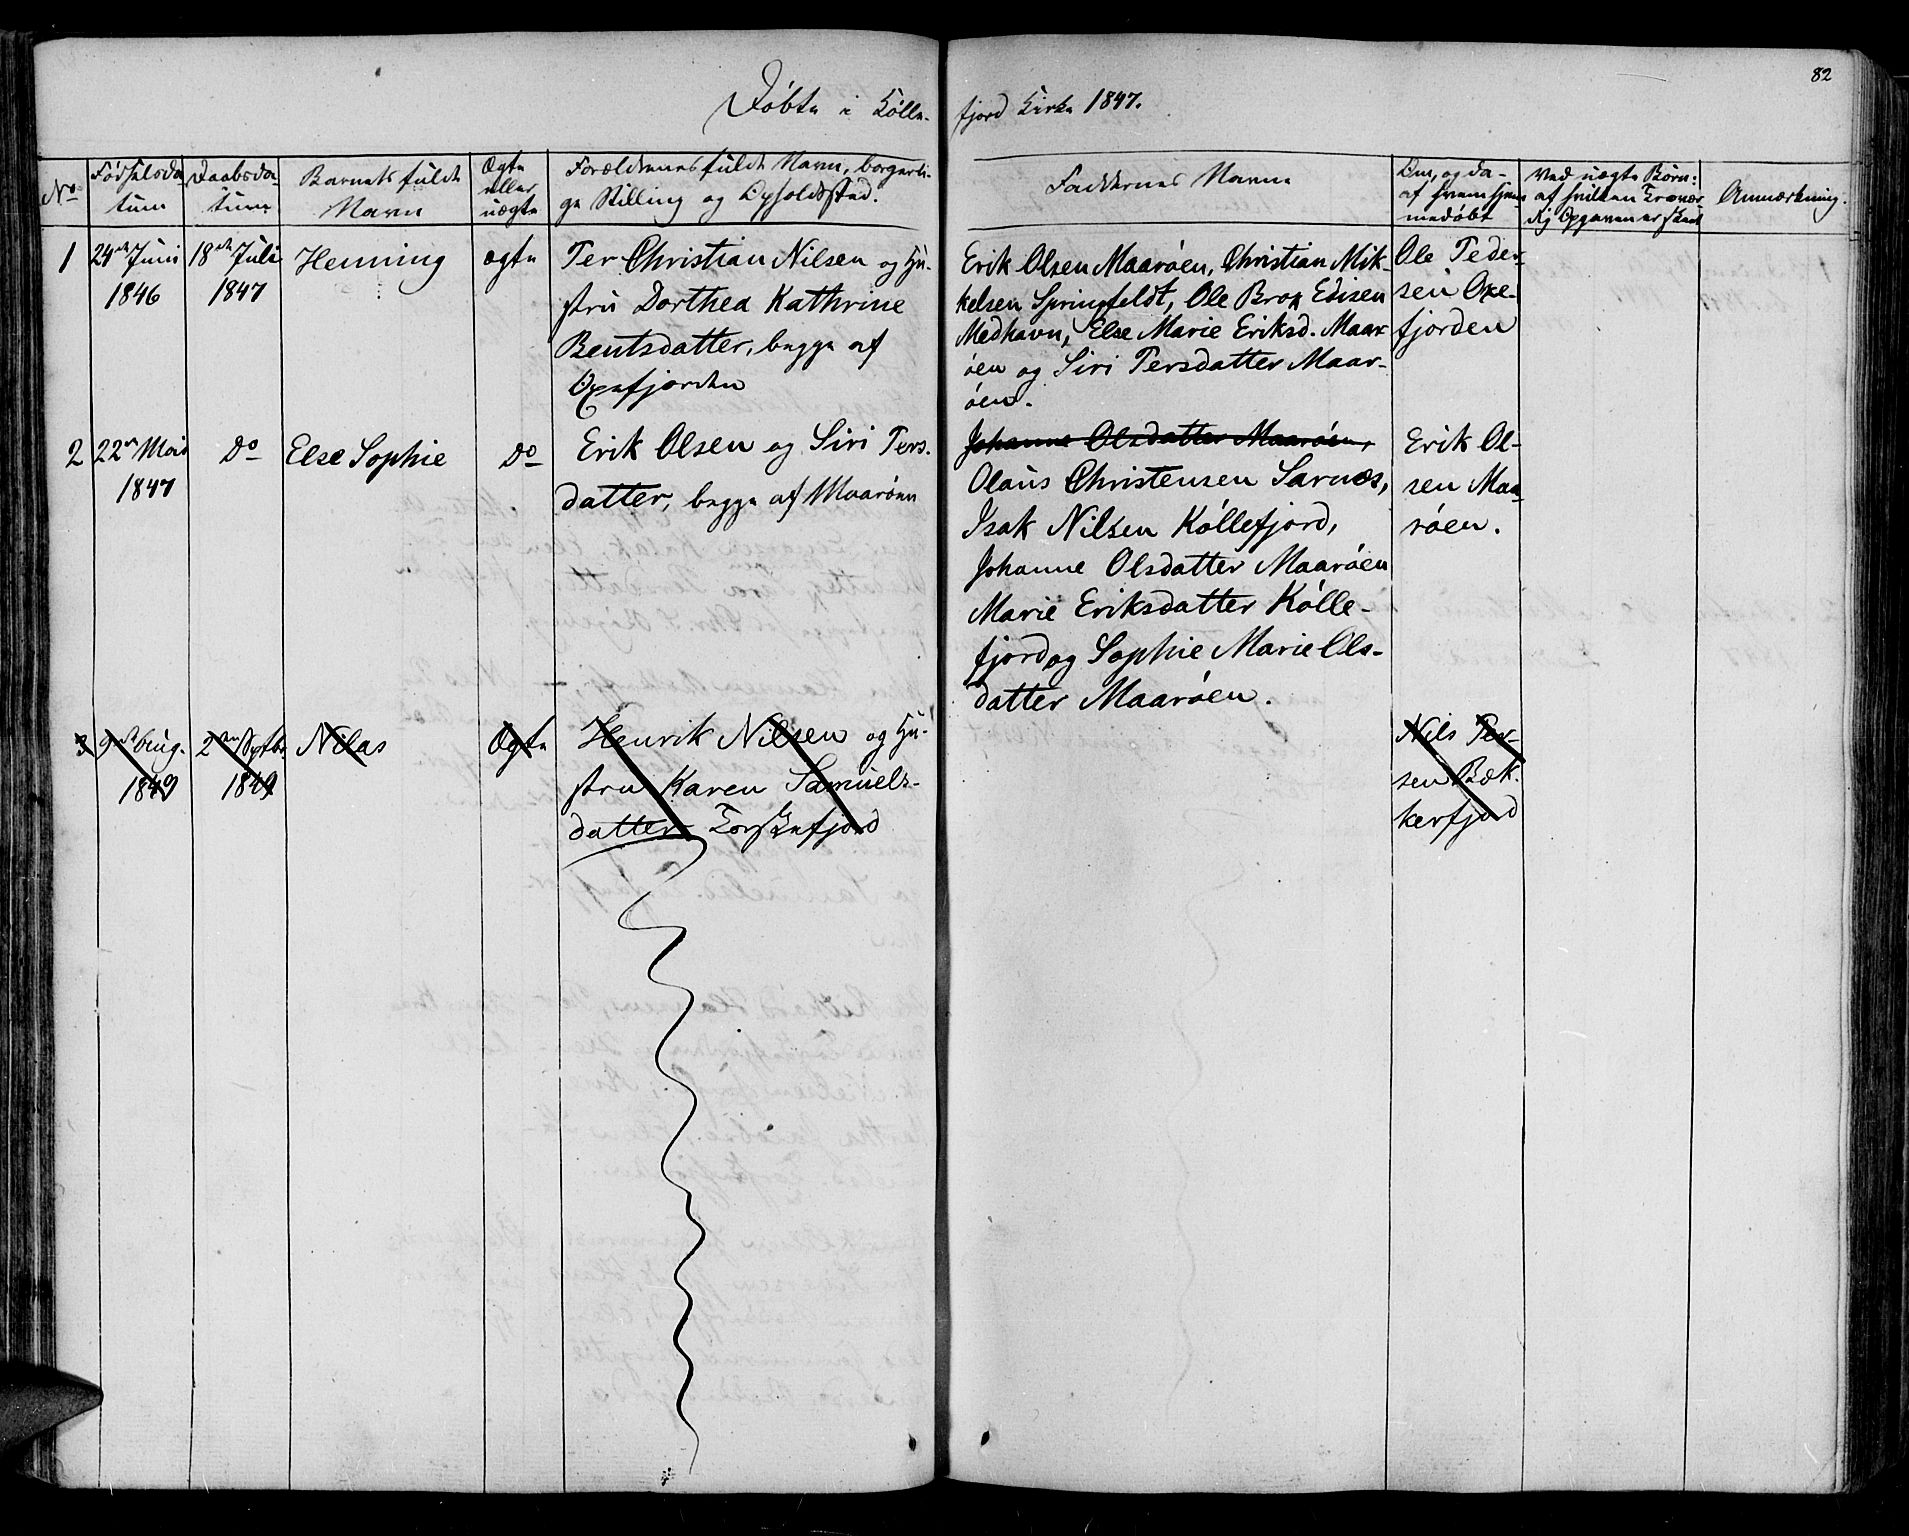 82
Döbte i Kölle-
fjord Kirke 1847.
No
Fødselsda-
tum
Daabsda-
tum
Barnets fulde
Navn
Ægte
eller
uægte
Forældrenes fulde Navn, borgerli-
ge Stilling og Opholdssted.
Faddernes Navne
Om, og da
af hvem hjem-
medöbt
Ved uægte Börn:
af hvilken
Opgaven er skeet
Anmærkning.
1
24de Juni
1846
18de Juli
1847
Henning
ægte
Per Christian Nilsen og Hu-
stru Dorthea Kathrine
Bentsdatter, begge af
Oxefjorden
Erik Olsen Maaröen, Christian Mik-
kelsen Springfeldt, Ole Brox Edisen
Medhavn, Else Marie Eriksd. Maar
öen og Siri Persdatter Maar-
öen.
Ole Peder-
sen Oxe-
fjorden
2
22de Mai
1847
Do
Else Sophie
Do
Erik Olsen og Siri Pers-
datter, begge af Maaröen
Johanne Olsdatter Maaröen,
Olaus Christensen Sarnæs,
Isak Nilsen Köllefjord,
Johanne Olsdatter Maaröen
Marie Eriksdatter Kölle-
fjord og Sophie Marie Ols-
datter Maaröen.
Erik Ol-
sen Maa-
röen.
3
9de Aug.
1849
2den Septbr.
1849
Nilas
Ægte
Henrik Nilsen og Hu-
stru Karen Samuels-
datter Torskefjord
Nils Per-
sen Bæk-
kerfjord